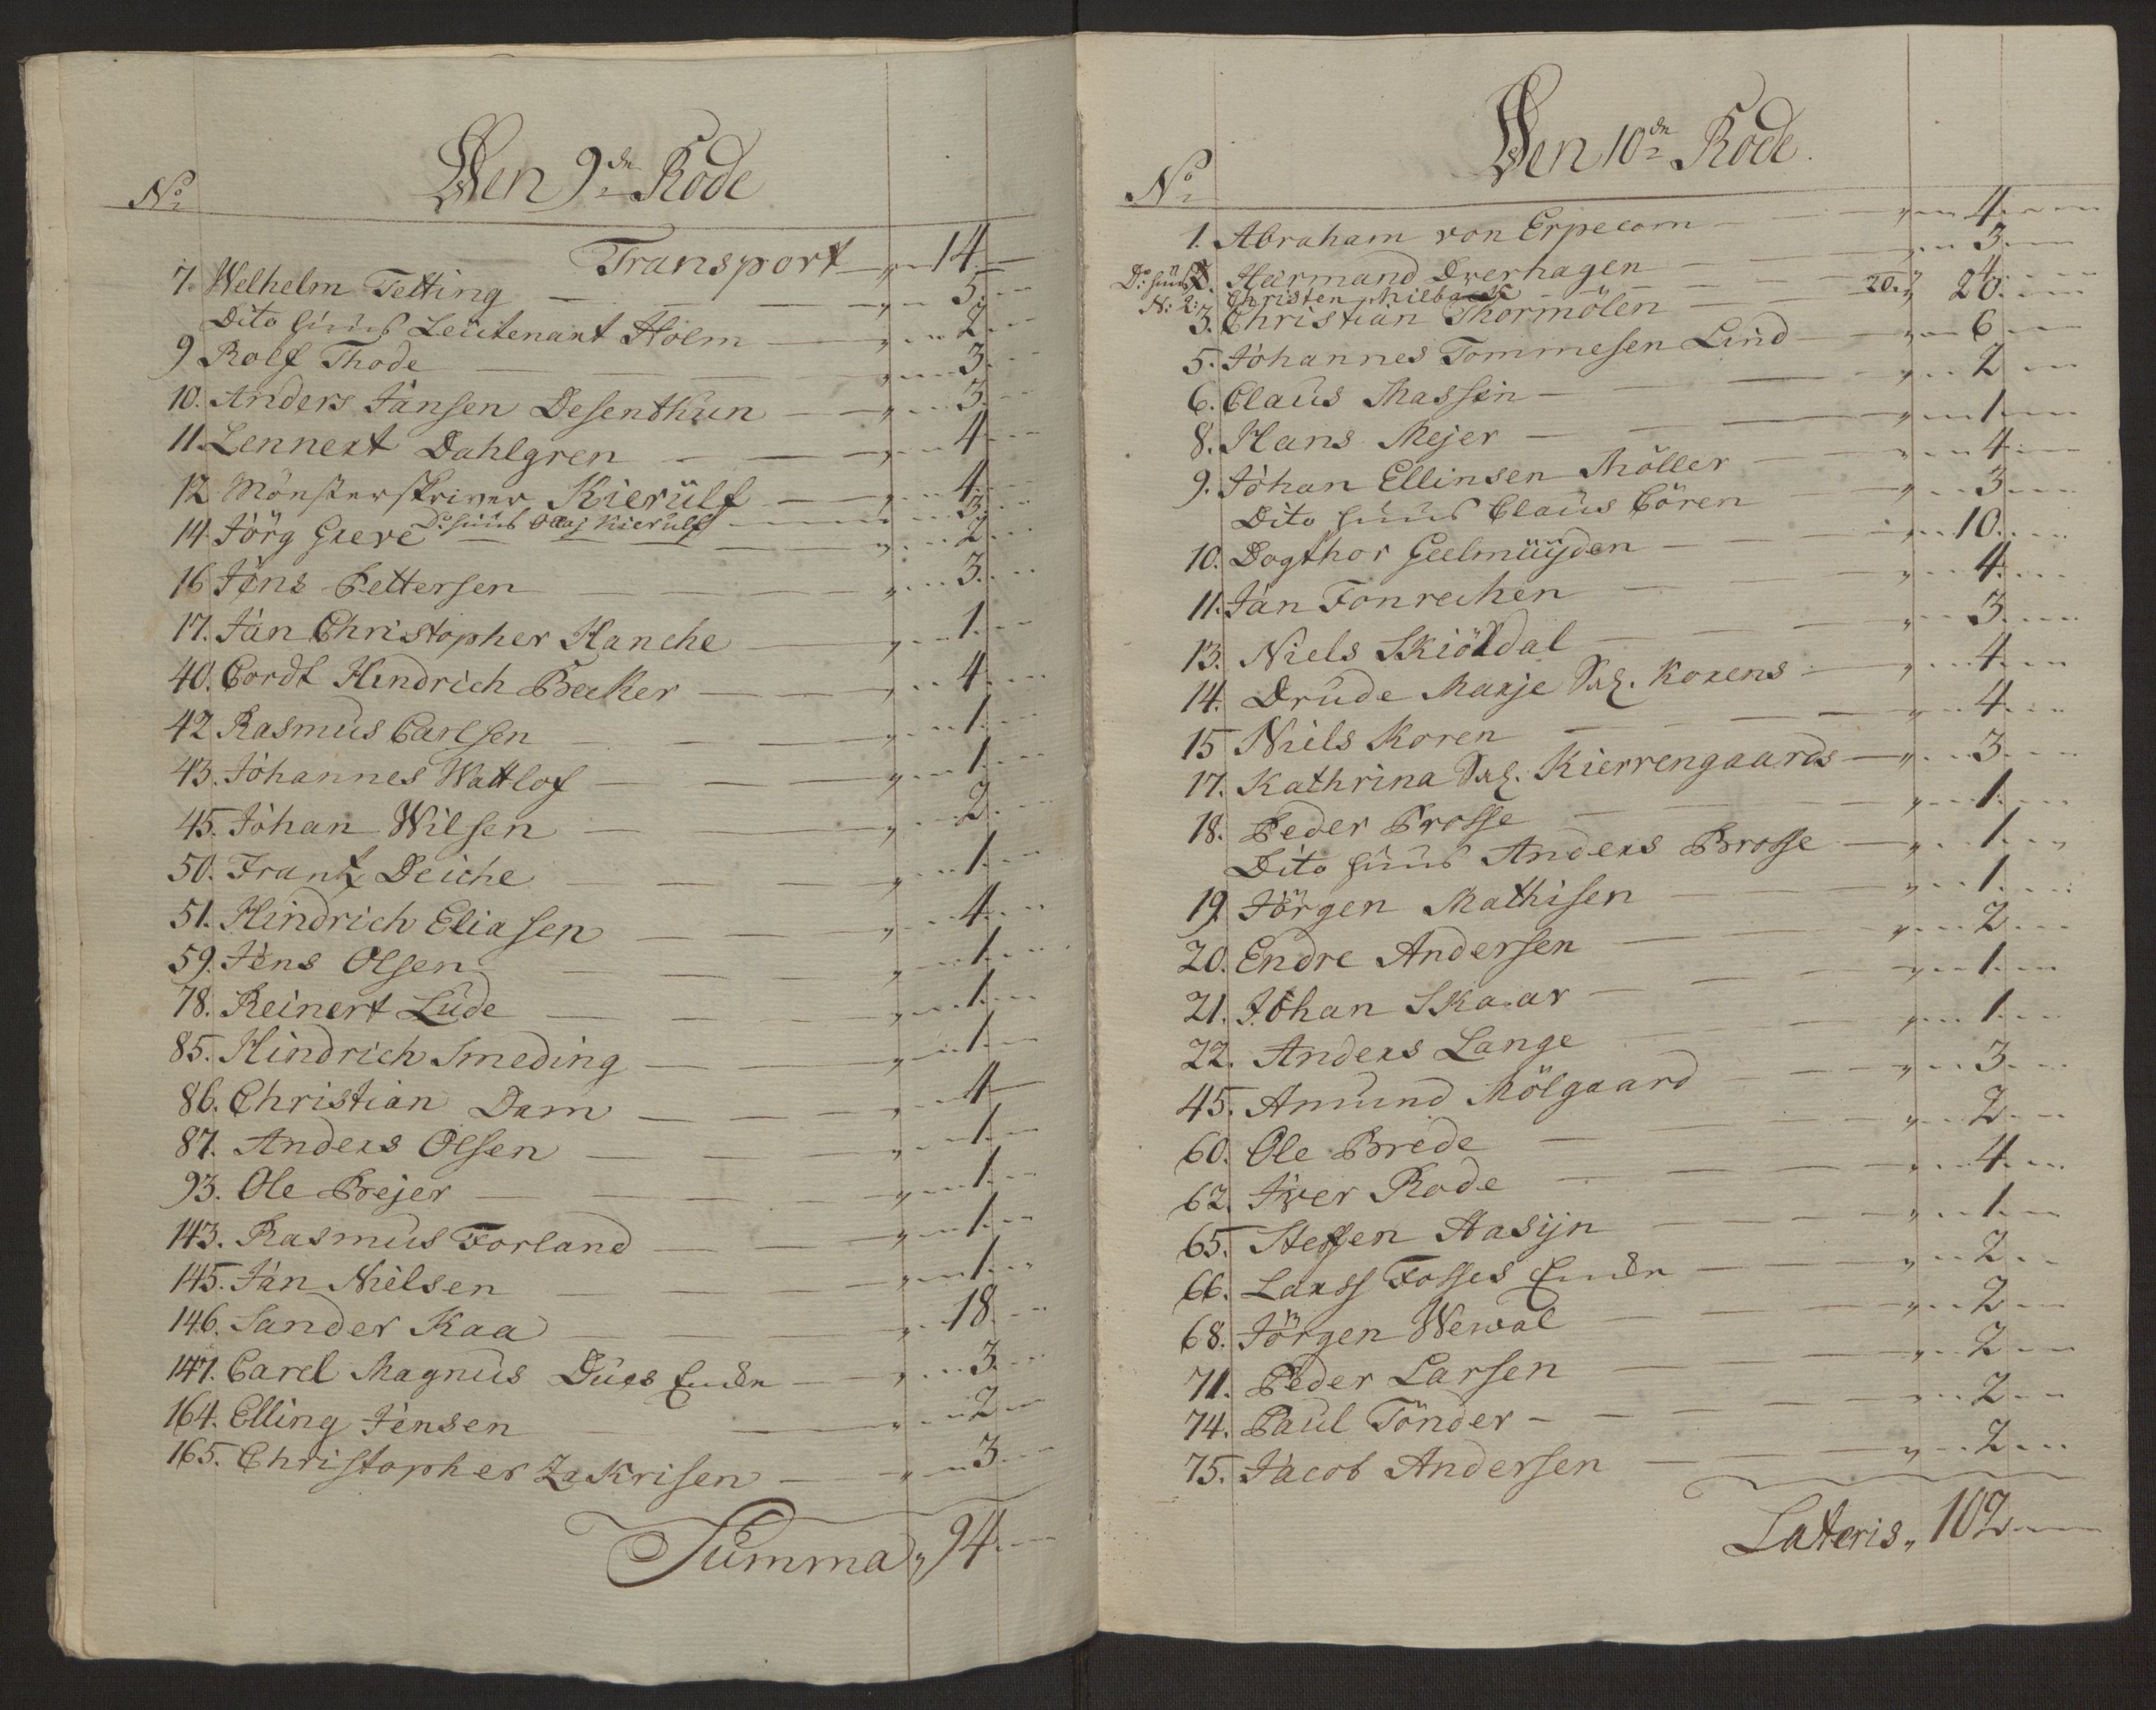 Den 9de Rode
No
Transport 14
7. Welhelm Tetting 5
Dito huus Leutenant Holm 2
9 Rolf Thode 3
10. Anders Jansen Desenthun 3
11. Lennert Dahlgren 4
12 Mönsterskriver Kierulf 4
Do huus Claj Kierulf 3
14 Jörg Greve 2
16 Jens Pettersen 3
17. Jan Christopher Hanche 1
40. Cordt Hindrich Becker 4
42 Rasmus Carlsen 1
43. Johannes Wattlof 1
45. Johan Wilsen 2
50. Frantz Deiche 1
51. Hindrich Eliasen 4
59. Jens Olsen 1
78. Reinert Lude 1
85. Hindrich Smeding 1
86. Christian Dam 4
87. Anders Olsen 1
93. Ole Brejer 1
143. Rasmus Forland 1
145. Jan Nielsen 1
146. Sander Kaa 18
147. Carel Magnus Dues Encke 3
164. Elling Jensen 2
165. Christopher Zakrisen 3
Summa 94
Den 10de Rode.
No
1. Abraham von Erpecom 4
2. Harmand Dverhagen 3
Do huus N: 2: Christen Milback 4
3. Christian Thormölen 20. 20
5. Johannes Tommesen Lind 6
6. Claus Massin 2
8. Hans Mejer 1
9. Johan Ellinsen Möller 4
Dito huus Claus Cören 3
10. Dogthor Geelmuyden 10
11. Jan Fonrechen 4
13. Niels Skiöldal 3
14. Drude Marje Sal. Korens 4
15 Niels Koren 4
17. Kathrina Sal. Kierrengaards 3
18. Peder Brosse 1
Dito huus Anders Brosse 1
19 Jörgen Mathisen 1
20. Endre Andersen 2
21. Johan Skaar 1
22. Anders Lange 1
45. Amund Mölgaard 3
60. Ole Brede 2
62. Iver Rode 4
65. Steffen Aasyn 1
66. Larss Fosses Encke 2
68. Jörgen Wewal 2
71. Peder Larsen 2
74. Paul Tönder 2
75. Jacob Andersen 2
Lateris 102